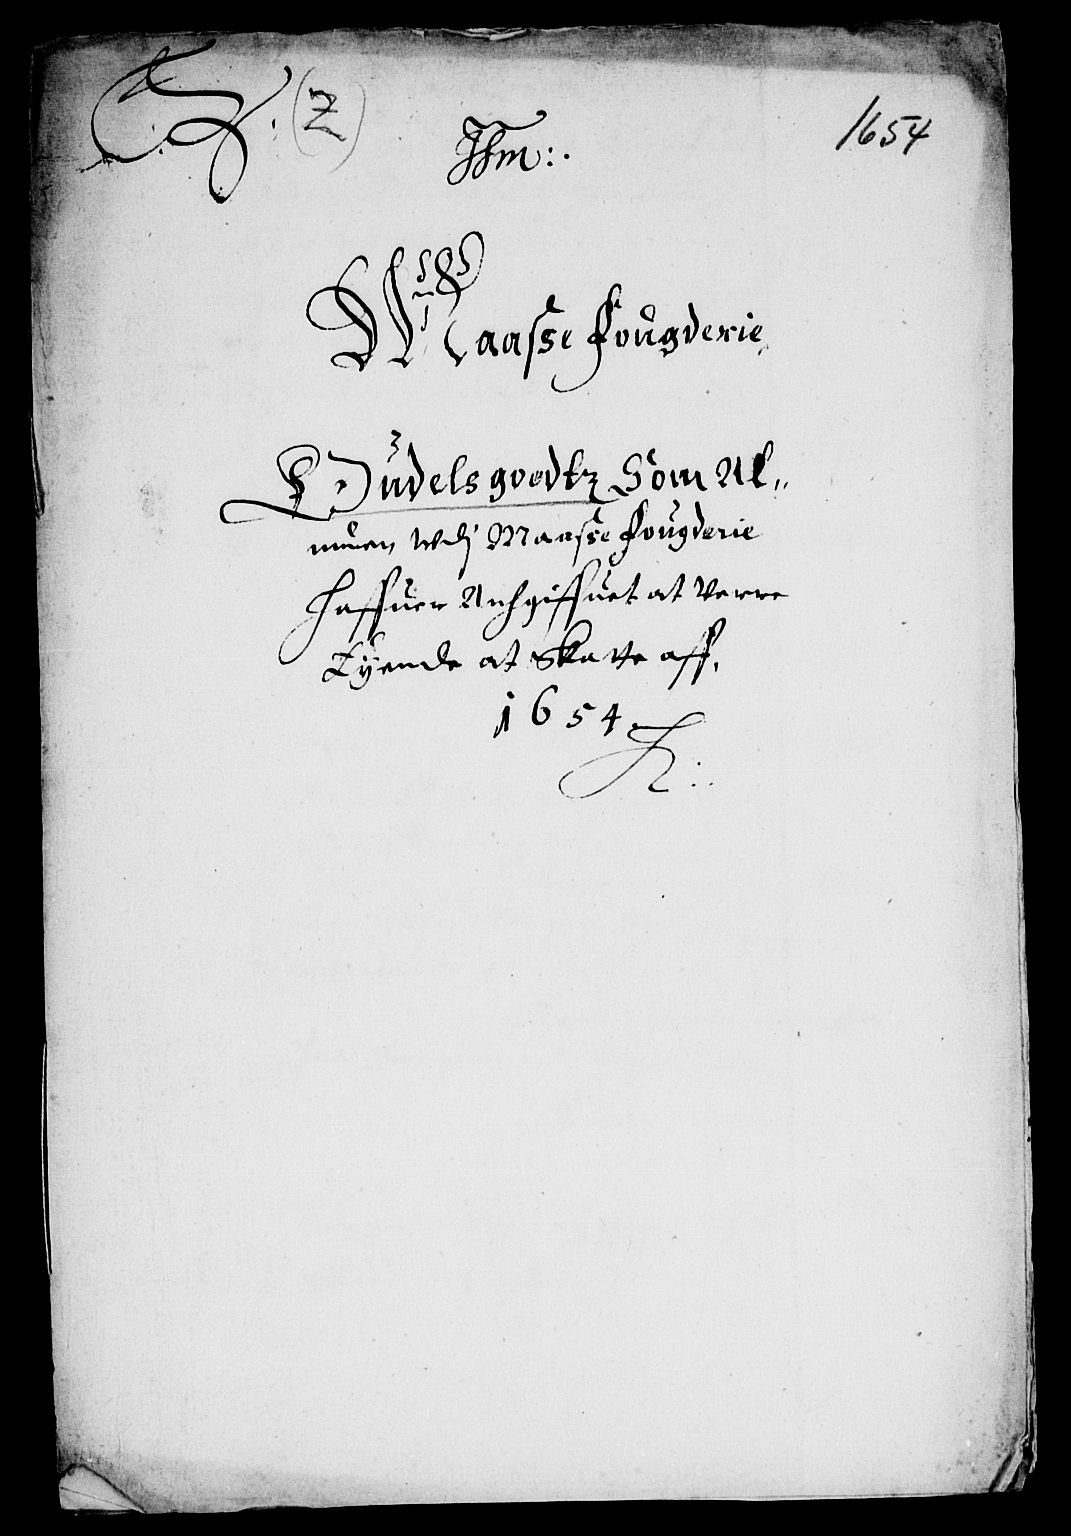 (2)
1654
Maasse fougderie
Oudelsgoedtz Som Al„
muen wdj Maasse fougderie
haffuer Anhgiffuet at Verre
Eyende at Skatte aff.
1654